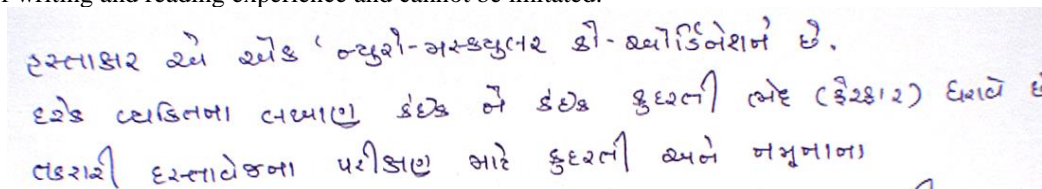 of writing and reading experience and cannot be imitated.
હસ્તાક્ષર એ એક ' ન્યુરો-મસ્ક્યુલર કો-ઓર્ડિનેશને છે.
દરેક વ્યક્તિના લખાણ કંઇક ને કંઇક કુદરતી ભેદ (ફેરફાર) ધરાવે છે
તકરારી દસ્તાવેજના પરીક્ષણ માટે કુદરતી અને નમૂનાના